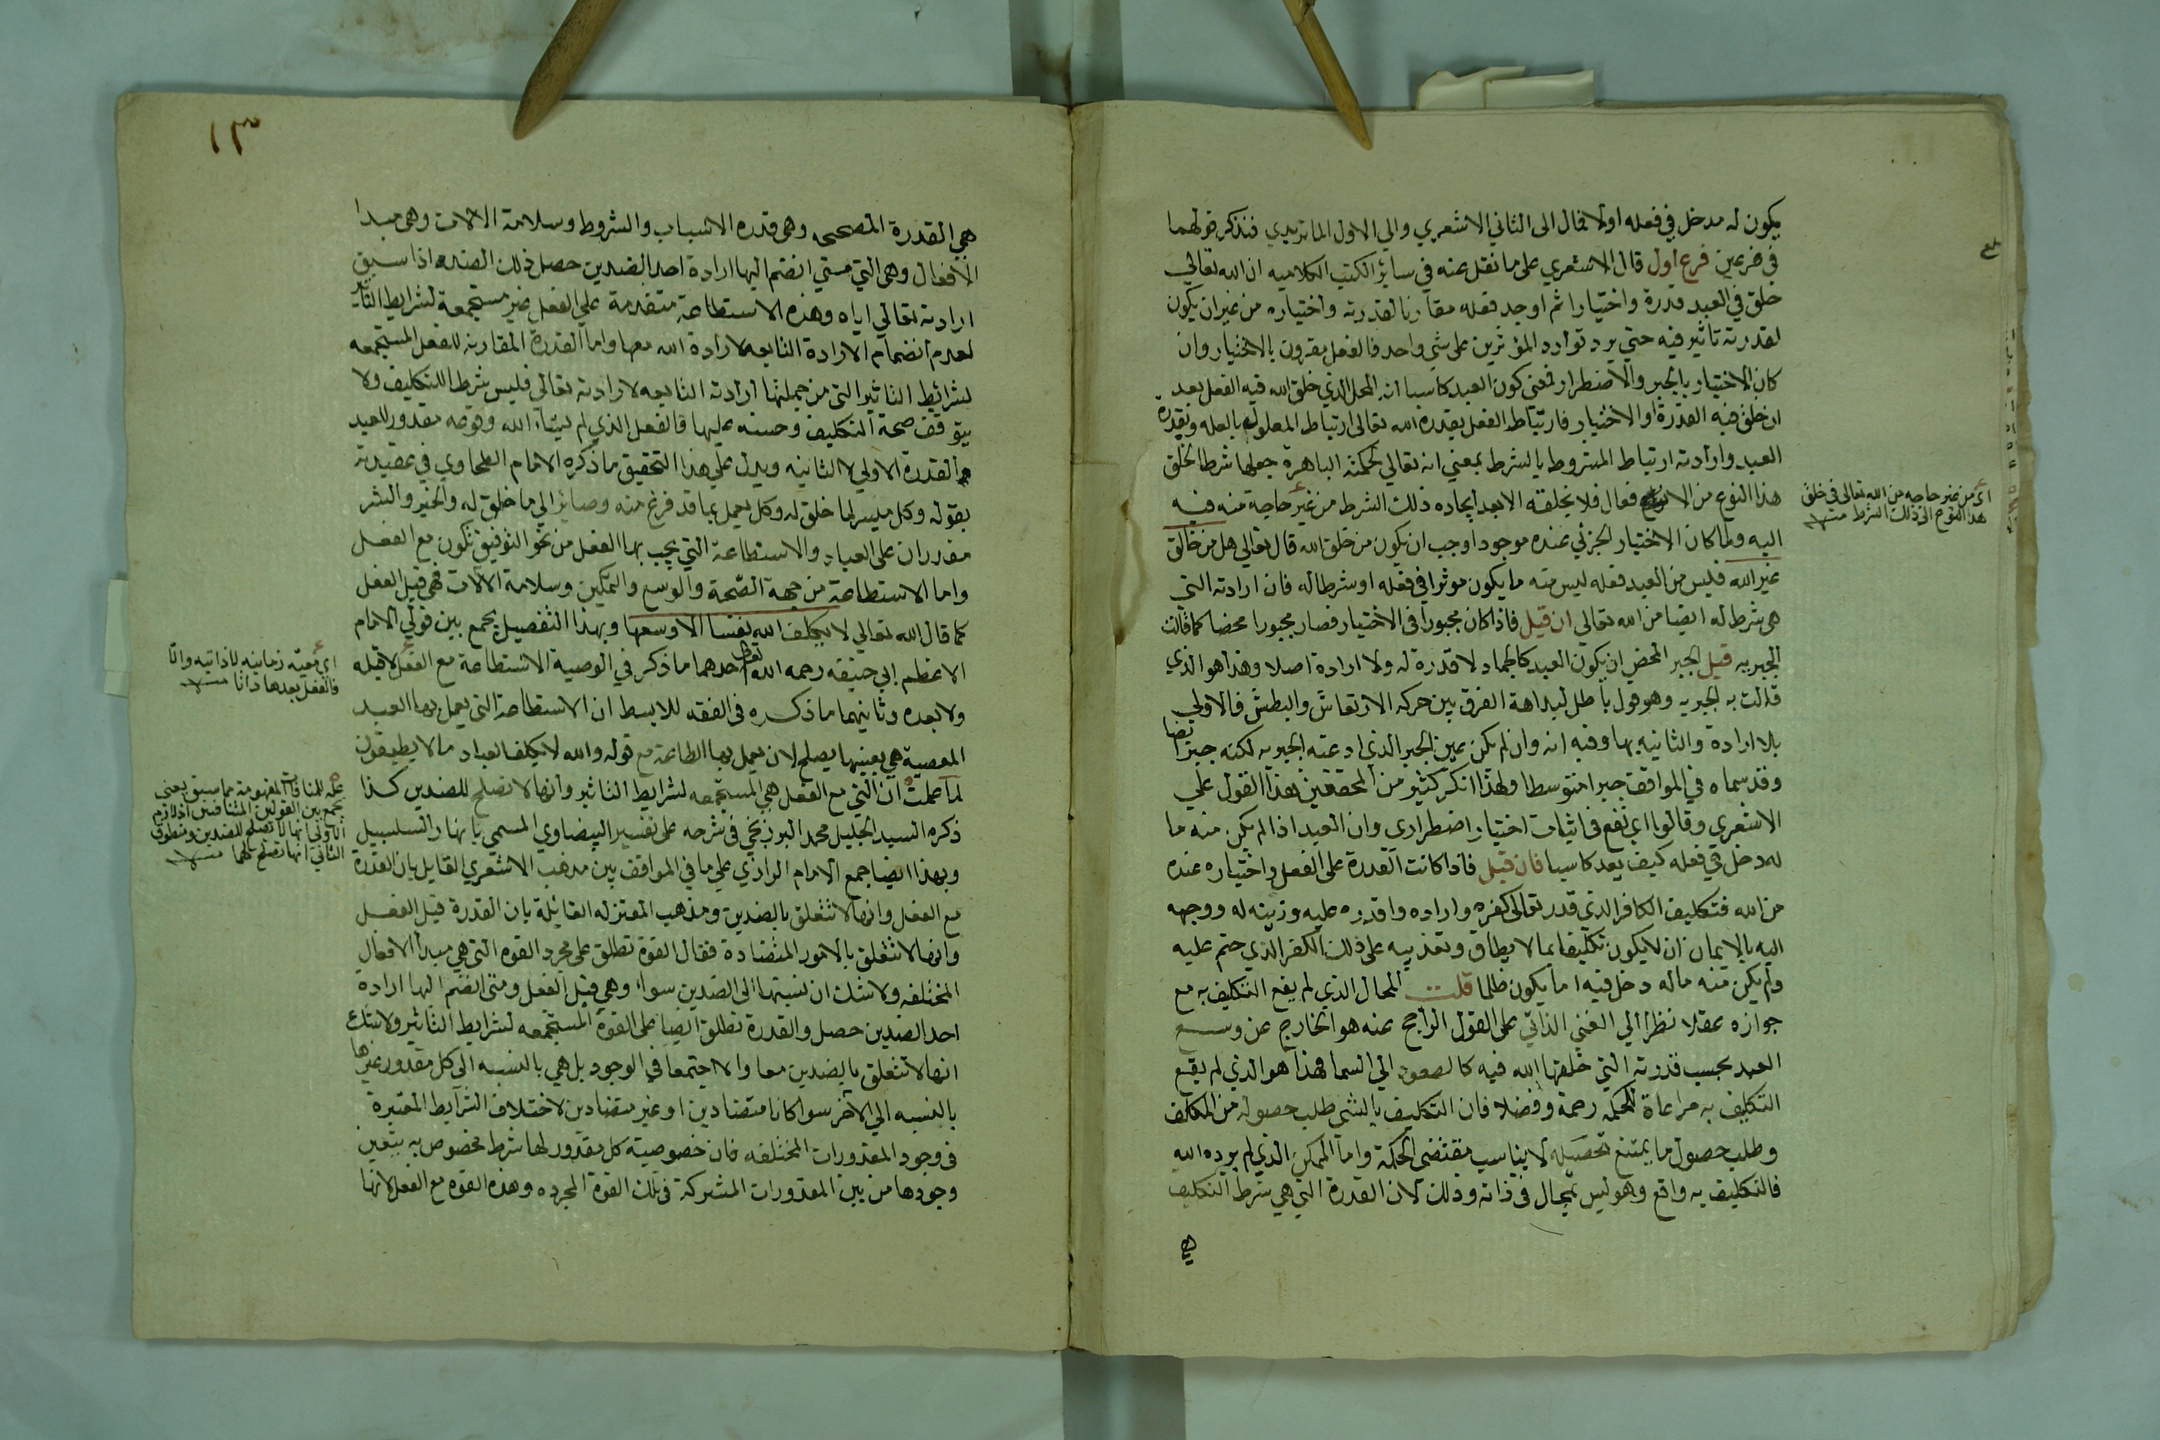 يكون له مدخل في فعله اولا فمال الى الثاني الاشعري والي الاول الماتريدي فنذكر قولهما
في فرعين فرع اول قال الاشعري على ما نقل عنه في سائر الكتب الكلاميه ان الله تعالي
خلق في العبد قدرة واختيارا ثم اوجد فعله مقارنا لقدرته واختياره من غير ان يكون
لقدرته تاثير فيه حتي يرد توارد المؤثرين على شي واحد فالفعل مقرون بالاختيار وان
كان الاختيار بالجبر والاضطرار فمعنى كون العبد كاسبا انه المحل الذي خلق الله فيه الفعل بعد
ان خلق فيه القدرة او الاختيار فارتباط الفعل بقدرة الله تعالى ارتباط المعلول بالعله وبقدرة
العبد وارادته ارتباط المشروط بالشرط بمعني انه تعالي لحكمته الباهرة جعلها شرطا لخلق
هذا النوع من الافعال فلا يخلقه الا بعد ايجاده ذلك الشرط من غير حاجة منه فيه
اليه ولما كان الاختيار الجزئي عنده موجودا وجب ان يكون من خلق الله قال تعالي هل من خالق
غير الله فليس من العبد فعله ليس منه ما يكون موثرا في فعله او شرطا له فان ارادته التي
هي شرط له ايضا من الله تعالى ان قيل فاذا كان مجبورا في الاختيار فصار مجبورا محضا كما قالت
الجبريه قيل الجبر المحض ان يكون العبد كالجماد لا قدرة له ولا ارادة اصلا وهذا هو الذي
قالت به الجبريه وهو قول باطل لبداهة الفرق بين حركه الارتعاش والبطش فالاولي
بلا ارادة والثانيه بها وفيه انه وان لم يكن عين الجبر الذي ادعته الجبريه لكنه جبر ايضا
وقد سماه في المواقف جبرا متوسطا ولهذا انكر كثير من المحققين هذا القول علي
الاشعري وقالوا اي نفع في اثبات اختيار اضطراري وان العبد اذا لم يكن منه ما
له دخل في فعله كيف يعد كاسبا فان قيل فاذا كانت القدرة على الفعل واختياره عنده
من الله فتكليف الكافر الذي قدر تعالى كفره واراده واقدره عليه وزينه له ووجهه
اليه بالايمان ان لا يكون تكليفا بما لا يطاق وتعذيبه على ذلك الكفر الذي حتم عليه
ولم يكن منه ماله دخل فيه اما يكون ظلما قلت المحال الذي لم يقع التكليف به مع
جوازه عقلا نظرا الي الغني الذاتي على القول الراجح عنه هو الخارج عن وسع
العبد بحسب قدرته التي خلقها الله فيه كالصعود الي السما فهذا هو الذي لم يقع
التكليف به مراعاة للحكمه رحمة وفضلا فان التكليف بالشئ طلب حصوله من المكلف
وطلب حصول ما يمتنع تحصيله لا يناسب مقتضى الحكمة واما الممكن الذي لم يرده الله
فالتكليف به واقع وهو ليس بمحال في ذاته وذلك لان القدرة التي هي شرط التكليف
هي
اي من غير حاجه من الله تعالى في خلق
هذا النوع الى ذلك الشرط منه
١٣
هي القدرة المصححه وهي قدرة الاسباب والشروط وسلامة الالات وهي مبدا
الافعال وهي التي متي انضم اليها ارادة احد الضدين حصل ذلك الضد اذا سبق
ارادته تعالي اياه وهذه الاستطاعة متقدمة على الفعل غير مستجمعة لشرايط التاثير
لعدم انضمام الارادة التابعه لارادة الله معها واما القدرة المقارنة للفعل المستجمعه
لشرائط التاثير التي من جملتها ارادته التابعه لارادته تعالى فليس شرط التكليف ولا
يتوقف صحة التكليف وحسنه عليها فالفعل الذي لم يشاء الله وقوعه مقدور للعبد
بالقدرة الاولي لا الثانيه ويدل علي هذا التحقيق ما ذكره الامام الطحاوي في عقيدته
بقوله وكل ميسر لما خلق له وكل يعمل بما قد فرغ منه وصائر الي ما خلق له والخير والشر
مقدران على العباد والاستطاعة التي يجب بها الفعل من نحو التوفيق تكون مع الفعل
واما الاستطاعة من جهة الصحة والوسع والتمكين وسلامة الالات فهي قبل الفعل
كما قال الله تعالي لا يكلف الله نفسا الا وسعها وبهذا التفصيل يجمع بين قولي الامام
الاعظم ابي حنيفه رحمه الله تعالى احدهما ما ذكر في الوصية الاستطاعة مع الفعل لا قبله
ولا بعده وثانيهما ما ذكره في الفقه للابسط ان الاستطاعة التي يعمل بها العبد
المعصية هي بعينها يصلح لان يعمل بها الطاعة مع قوله والله لا يكلف العباد ما لا يطيقون
لما علمت ان التي مع الفعل هي المستجمعه لشرايط التاثير وانها لا تصلح للضدين كذا
ذكره السيد الجليل محمد البرزنجي في شرحه على تفسير البيضاوي المسمى بانهار السلسبيل
وبهذا ايضا جمع الامام الرازي علي ما في المواقف بين مذهب الاشعري القايل بان القدرة
مع الفعل وانها لا تتعلق بالضدين ومذهب المعتزله القائلة بان القدرة قبل الفعل
وانها لا تتعلق بالامور المتضادة فقال القوة تطلق على مجرد القوه التي هي مبدأ الافعال
المختلفه ولا شك ان نسبتها الى الضدين سواء وهي قبل الفعل ومتى انضم اليها ارادة
احد الضدين حصل والقدرة تطلق ايضا على القوة المستجمعه لشرايط التاثير ولا شك
انها لا تتعلق بالضدين معا والا اجتمعا في الوجود بل هي بالنسبه الى كل مقدور غيرها
بالنسبه الي الآخر سوا كانا متضادين او غير متضادين لاختلاف الشرايط المعتبرة
في وجود المقدورات المختلفه فان خصوصية كل مقدور لها شرط مخصوص به يتعين
وجودها من بين المقدورات المشتركة في تلك القوة المجرده وهذه القوه مع الفعل لانها
اي معيته زمانيه لا ذاتيه والا
فالفعل بعدها ذاتا منه
علة للمنافات المفهومة مما سبق يعني
يجمع بين القولين المتنافين اذ لازم
الاولي انها لا تصلح للضدين ومنطوق
الثاني انها تصلح لهما منه